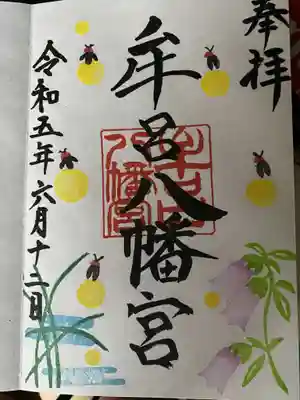 奉拝
牟呂八幡宮
令和五年六月十二日